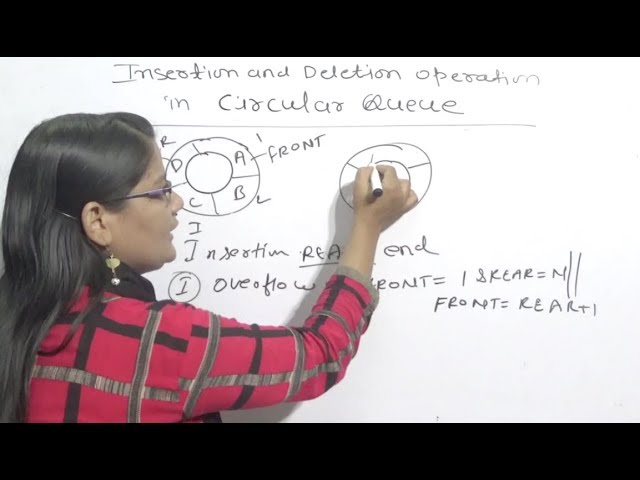 Insertion and Deletion operation
in Circular Queue
R
1
D
A
FRONT
C
B
I
Insertion REA end
I Overflow RONT= 1 &REAR=N ||
FRONT= REAR+1